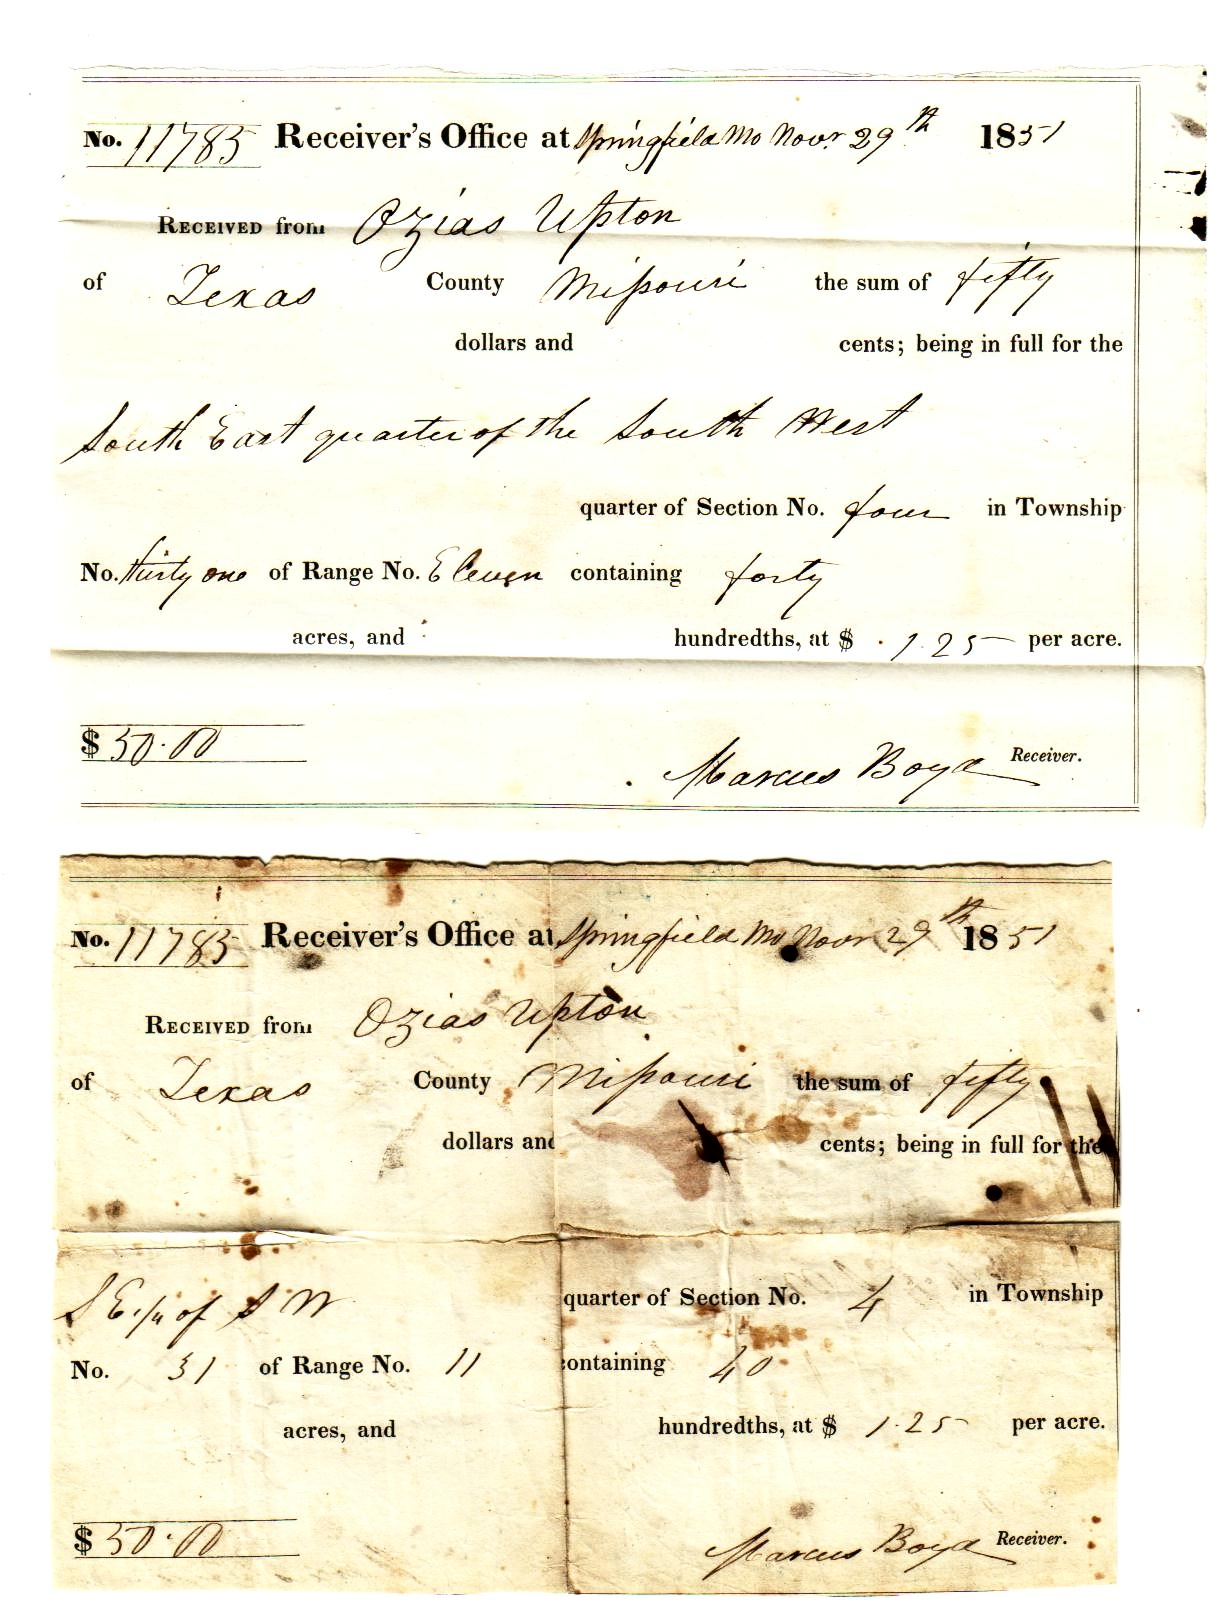 No. 11785 Receiver's Office at Springfield Mo Novr. 29th 1851
Received from Ozias Upton
of Texas County Missouri the sum of fifty
dollars and cents; being in full for the
South East quarter of the South West
quarter of Section No. four in Township
No. thirty one of Range No. Eleven containing forty
acres, and hundredths, at $ 1.25 per acre.
$ 50.00
Marcus Boyd Receiver.
No. 11785 Receiver's Office at Springfield Mo Novr 29th 1851
Received from Ozias Upton
of Texas County Missouri the sum of fifty
dollars and cents; being in full for the
S E 1/4 of S W quarter of Section No. 4 in Township
No. 31 of Range No. 11 containing 40
acres, and hundredths, at $ 1.25 per acre.
$ 50.00
Marcus Boyd Receiver.